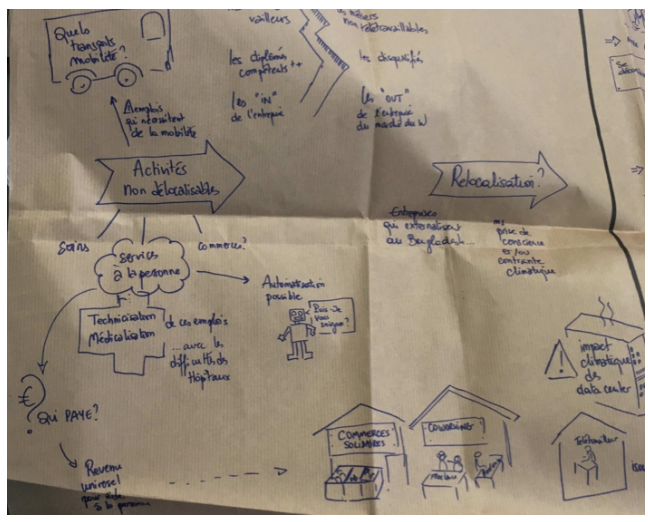 Quels
transports
mobilité?
vailleurs
non télétravaillables
les diplômés
compétents ++
les disqualifié
les "IN"
de l'entreprise
les "OUT"
de l'entreprise
du marché du W
emplois
qui nécessitent
de la mobilité
Activités
non délocalisables
Relocalisation?
Soins
services
à la personne
commerces?
Entreprises
qui externalisent
au Bangladesh...
prise de
conscience
et/ou
contrainte
climatique
Automatisation
possible
Puis-je
vous
soigner?
Technicisation
Médicalisation
de ces emplois
... avec les
difficultés des
Hôpitaux
impact
climatique
des
data center
€
QUI PAYE?
COMMERCES
SOLIDAIRES
COWORKING
Télétravailleur
Revenu
universel
à la personne